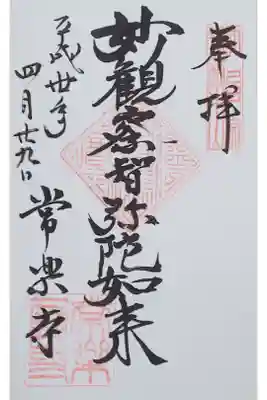 奉拝
妙觀察智弥陀如来
平成卅年
四月廿九日
常樂寺